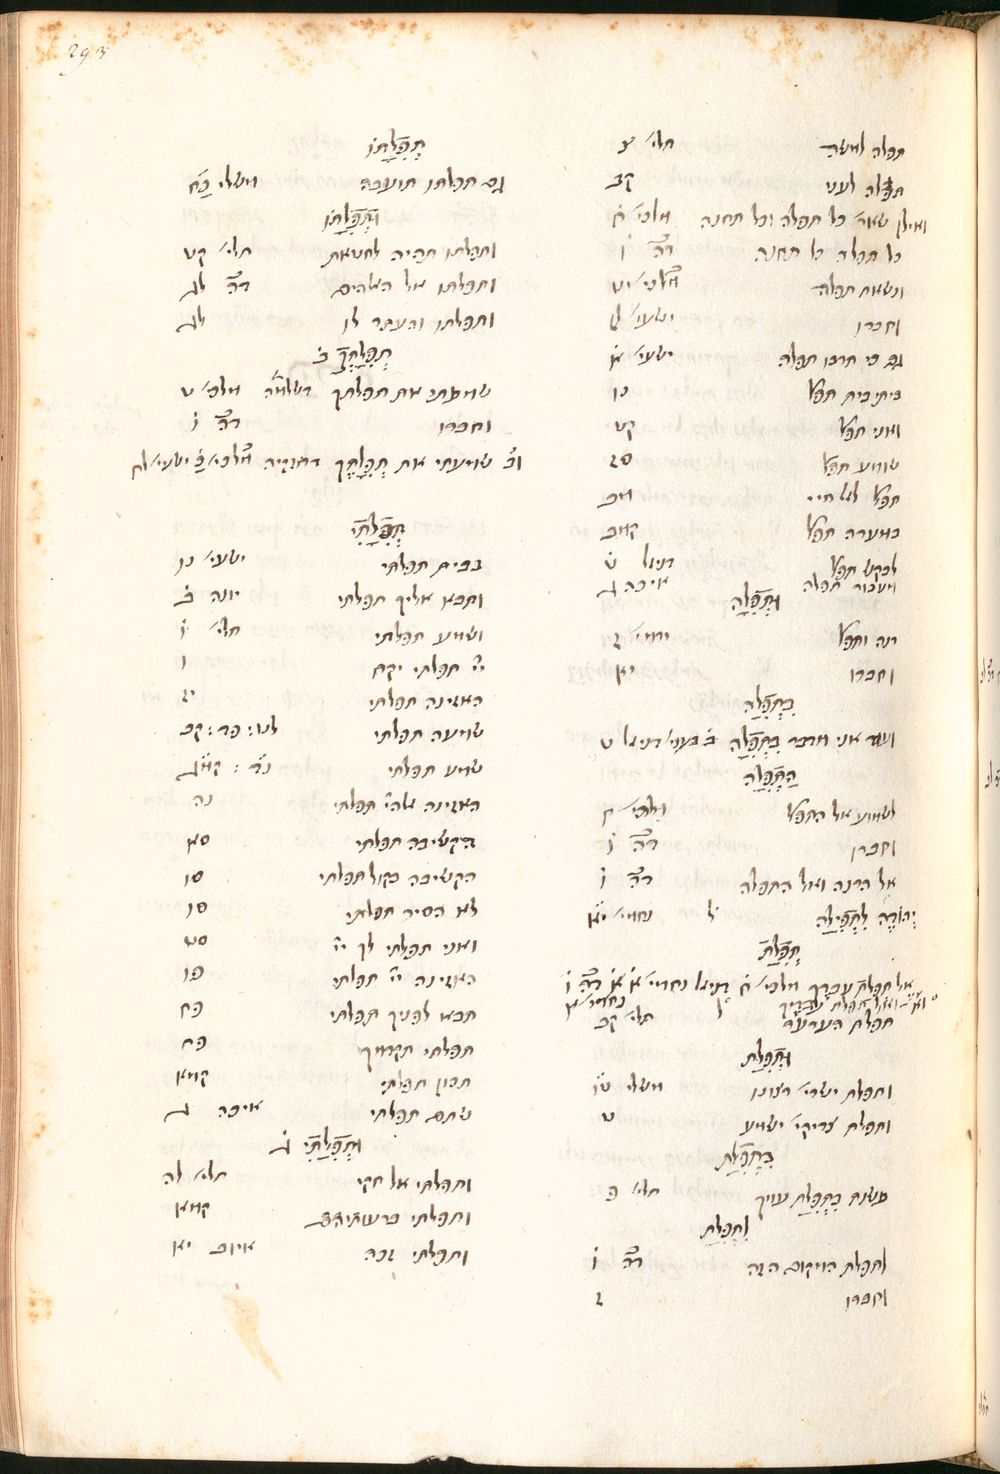 293
תפלה למשה תלי׳ צ
תפלה לעני קב
ואילן שאר׳ כל תפלה וכל תחנה מלכי׳ ח
כל תפלה כל תחנה דה ו
ונשאת תפלה מלכי׳ יט
וחברו ישעי׳ לז
גם כי תרבו תפלה ישעי׳ א
ביתי בית תפל׳ נו
ואני תפל׳ קט
שומע תפל׳ סה
תפל׳ לאל חיי מב
במערה תפל׳ קמב
לבקש תפל׳ דניאל ט
מעבור תפלה איכה ג
וּתְפִלָּה
רנה ותפל׳ ירמי׳ ז
וחברו יא
בִּתְפִלָּה
ועוד אני מדבר בתפלה דניאל ט
הַתְּפִלָּה
לשמוע אל התפל׳ מלכי׳ ח
וחברו דה ו
אל הרנה ואל התפלה דה ו
יְהוֹדֶה לַתְּפִילָה ל נחמי׳ יא
תְּפִלַּת
אל תפלת עבדך מלכי׳ ח דניאל נחמי׳ א א דה ו
ואל תפלת עבדיך ל נחמי׳ א
תפלת הערער תלי׳ קב
וּתְפִלַּת
ותפלת ישרי׳ רצונו משלי טו
ותפלת צדיקי׳ ישמע ט
בִּתְפִלַּת
עשנת בתפלת עמך תלי׳ פ
לִתְפִלַּת
לתפלת המקום הזה דה ו
וחברו ז
תְּפִלָּתוֹ
גם תפלתו תועבה משלי כח
וּתְפִלָּתוֹ
ותפלתו תהיה לחטאת תלי׳ קט
ותפלתו אל אלהים דה לג
ותפלתו והעתר לו לג
תְּפִלָּתְךָ ב
שמעתי את תפלתך דשלמה מלכי׳ ט
וחברו דה ז
וב׳ שמעתי את תפלתך דחזקיה מלכי׳ כ ישעי׳ לח
תְּפִלָּתִי
בבית תפלתי ישעי׳ נו
ותבא אליך תפלתי יונה ב
ושמע תפלתי תלי׳ ד
יי׳ תפלתי יקח ו
האזינה תפלתי יז
שמעה תפלתי לט: פד: קב
שמע תפלתי נד: קמג
האזינה אלהי׳ תפלתי נה
הקשיבה תפלתי סא
הקשיבה בקול תפלתי סו
לא הסיר תפלתי סו
ואני תפלתי לך יי׳ סט
האזינה יי׳ תפלתי פו
תבא לפניך תפלתי פח
תפלתי תקדמך פח
תכון תפלתי קמא
שתם תפלתי איכה ג
וּתְפִלָּתִי ג
ותפלתי אל חקי תלי׳ לה
ותפלתי ברעותיהם קמא
ותפלתי זכה איוב